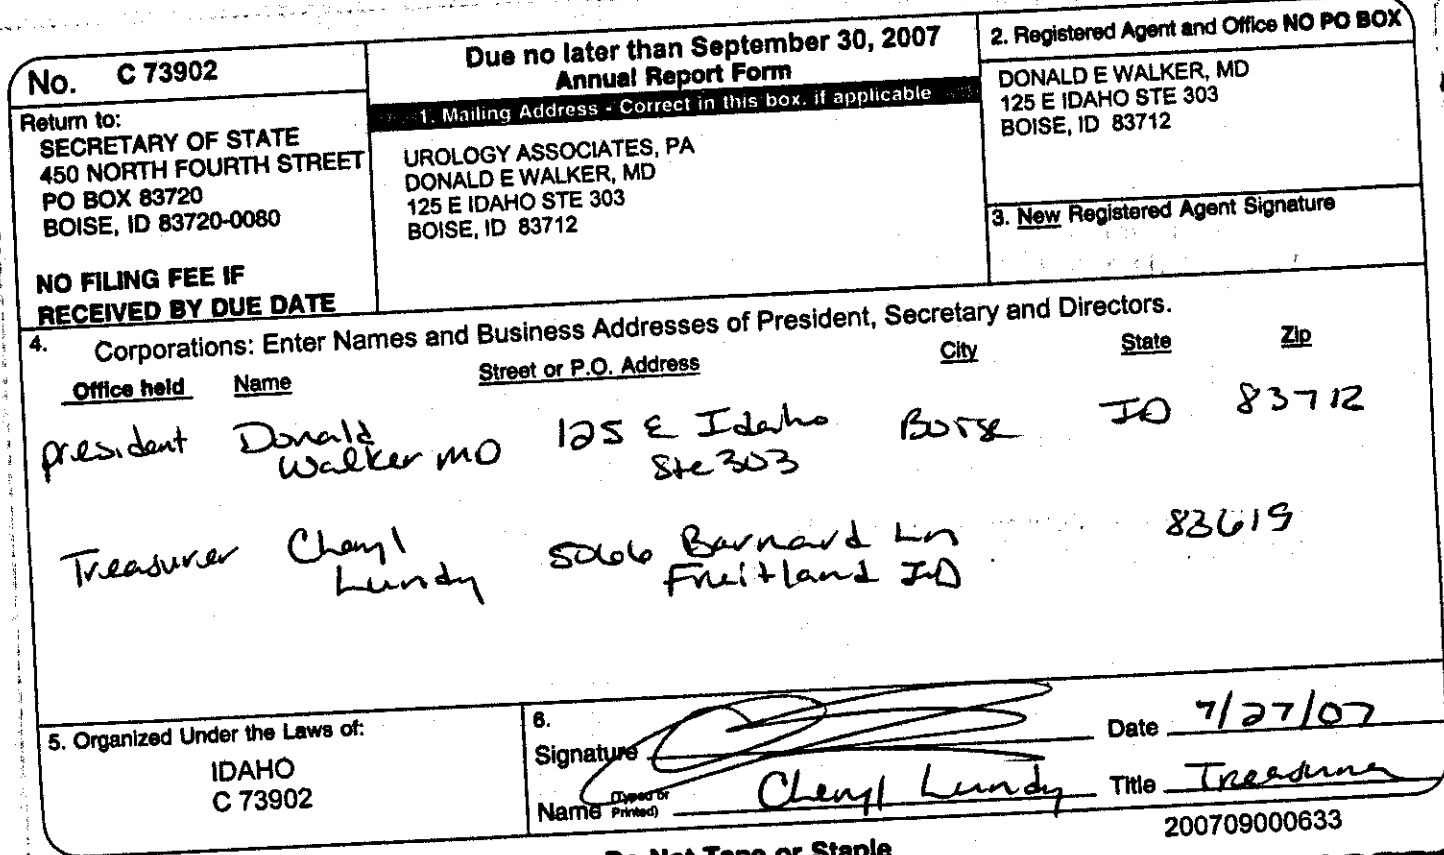 No. C 73902
Return to:
SECRETARY OF STATE
450 NORTH FOURTH STREET
PO BOX 83720
BOISE, ID 83720-0080
NO FILING FEE IF
RECEIVED BY DUE DATE
Due no later than September 30, 2007
Annual Report Form
1. Mailing Address - Correct in this box, if applicable
UROLOGY ASSOCIATES, PA
DONALD E WALKER, MD
125 E IDAHO STE 303
BOISE, ID 83712
2. Registered Agent and Office NO PO BOX
DONALD E WALKER, MD
125 E IDAHO STE 303
BOISE, ID 83712
3. New Registered Agent Signature
4. Corporations: Enter Names and Business Addresses of President, Secretary and Directors.
Office held Name Street or P.O. Address City State Zip
president Donald 125 E Idaho Boise ID 83712
Walker MD Ste 303
Treasurer Cheryl 5066 Barnard Ln 83619
Lundy Fruitland ID
5. Organized Under the Laws of:
IDAHO
C 73902
6.
Signature Date 7/27/07
Name (Typed or Printed) Cheryl Lundy Title Treasurer
200709000633
Do Not Tape or Staple